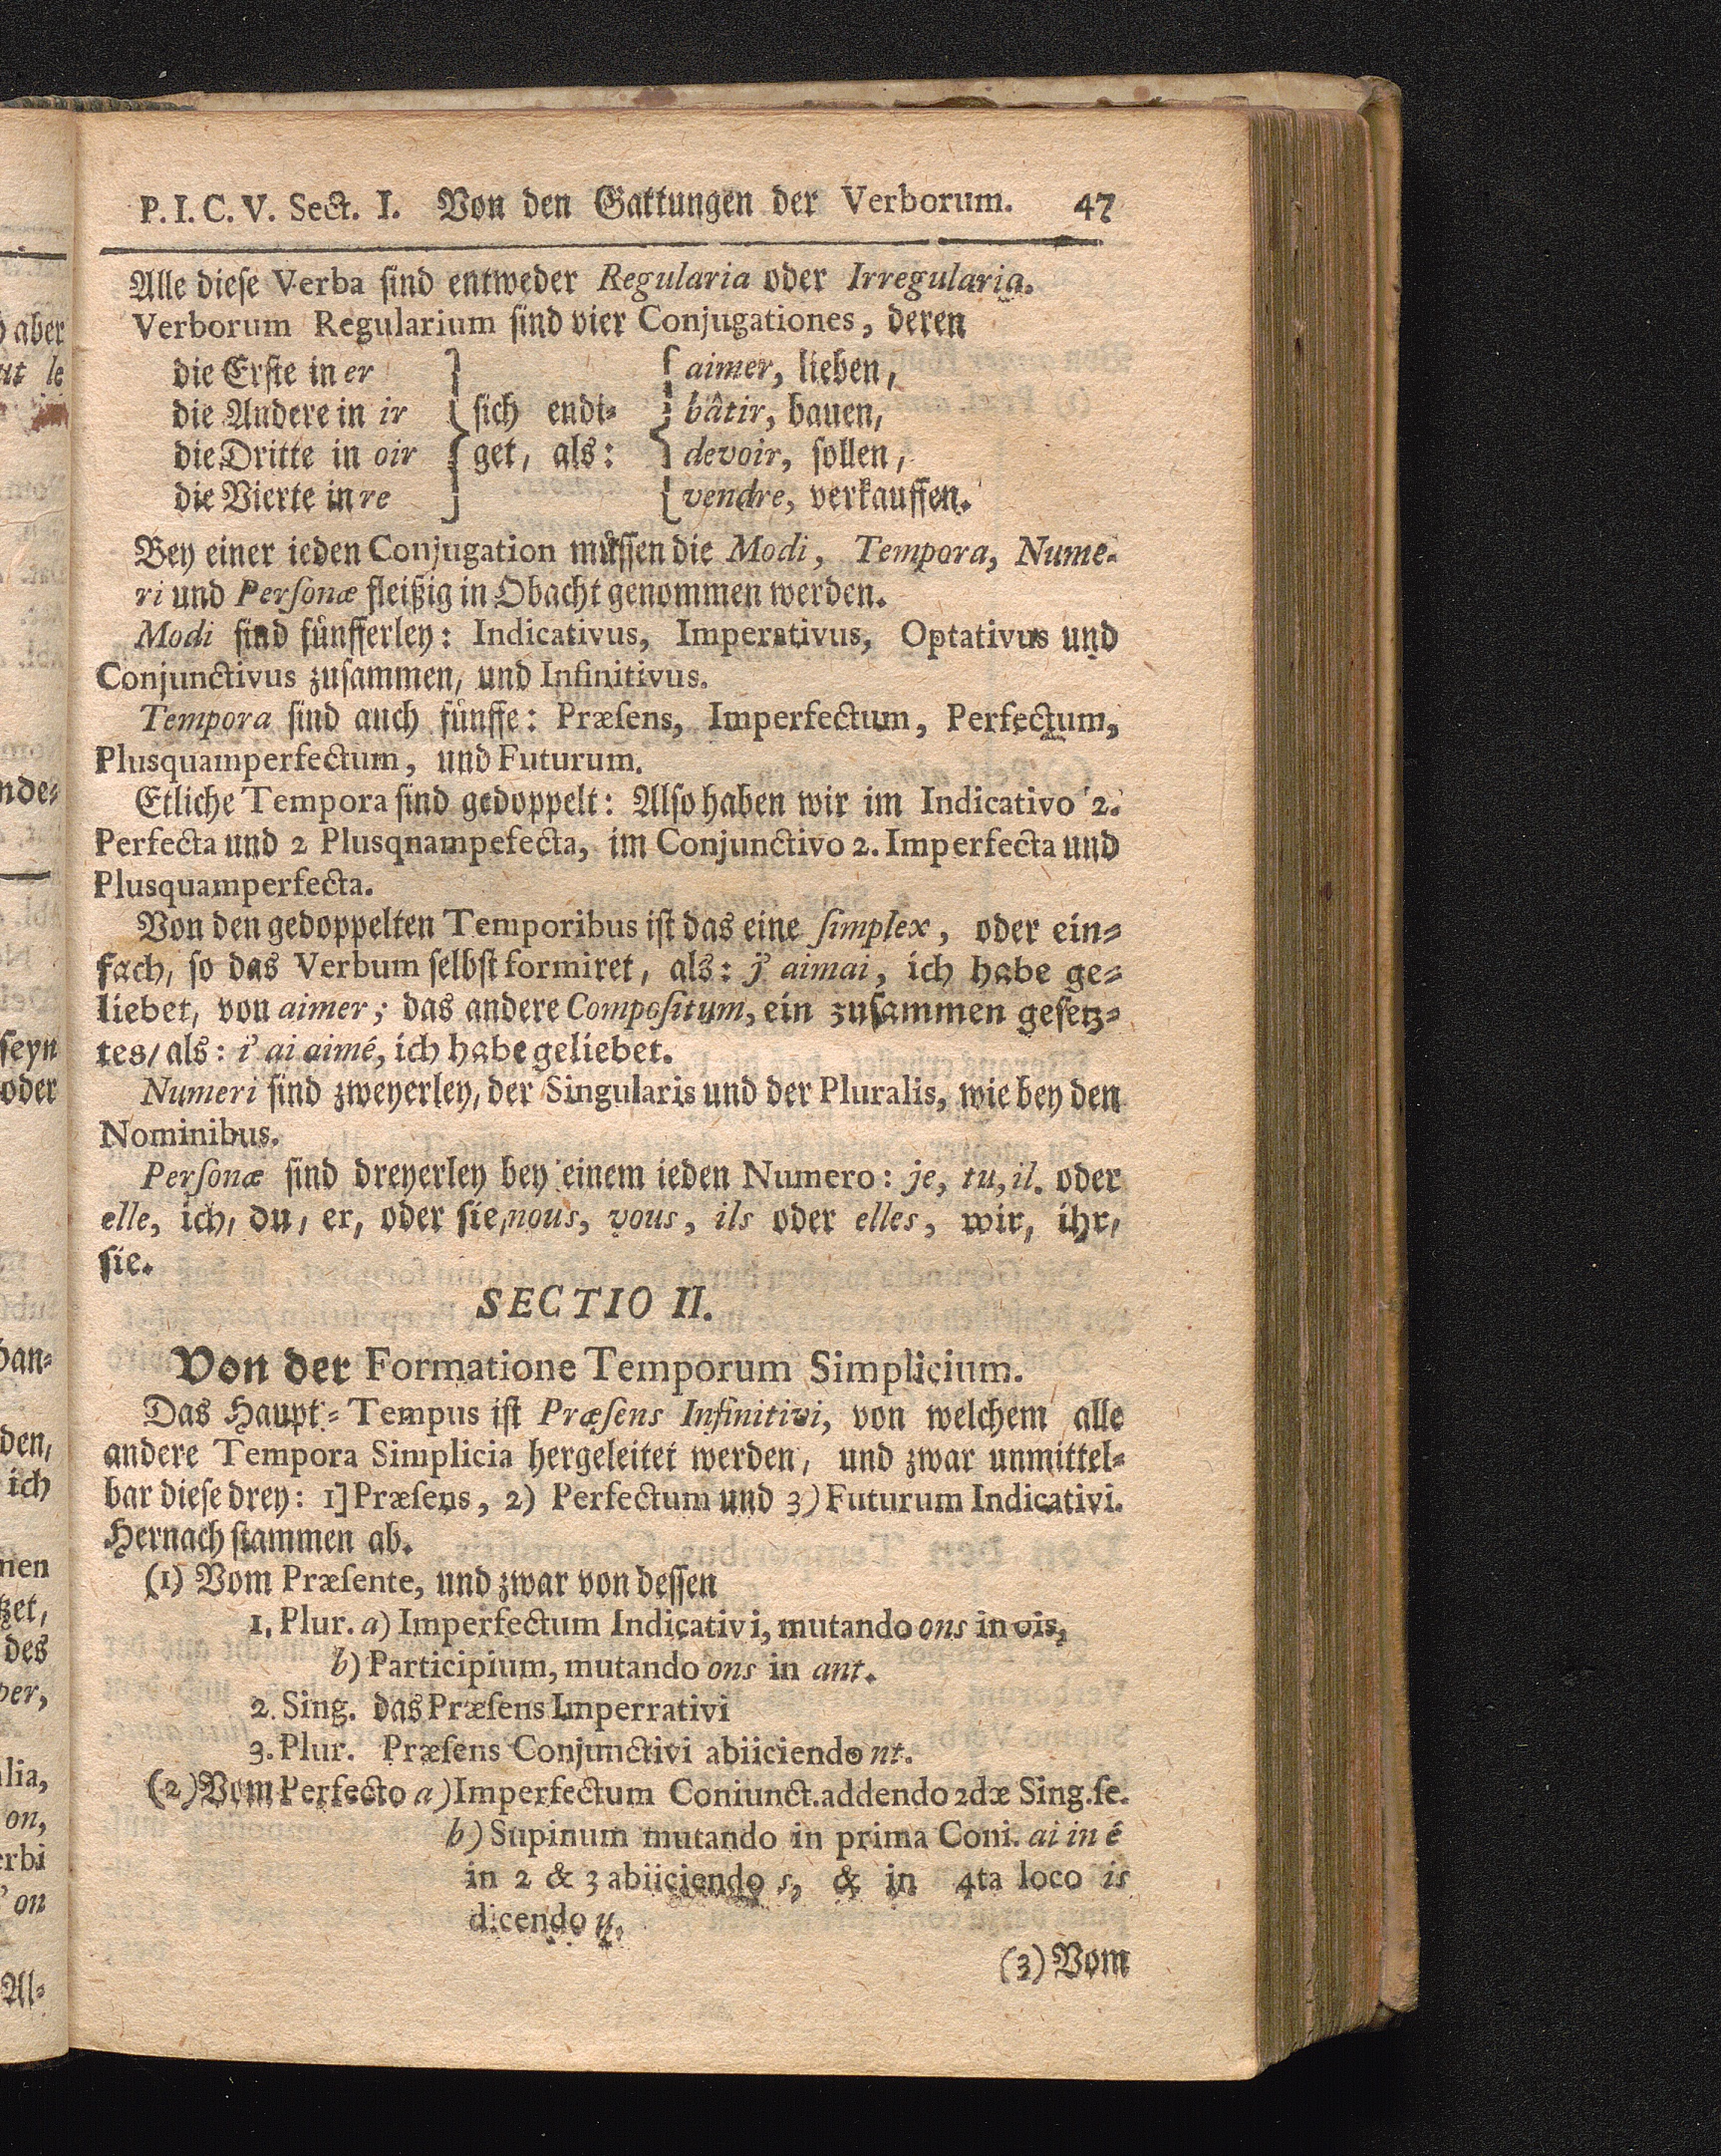 P. I. C. V. Sect. I. Von den Gattungen der Verborum. 47
Alle dieſe Verba ſind entweder Regularia oder Irregularia.
Verborum Regularium ſind vier Conjugationes, deren
die Erſte in er ] { aimer, lieben,
die Andere in ir } ſich endi- { bâtir, bauen,
die Dritte in oir } get, als: { devoir, ſollen,
die Vierte in re ] [ vendre, verkauffen.
Bey einer ieden Conjugation muͤſſen die Modi, Tempora, Nume-
ri und Perſonæ fleißig in Obacht genommen werden.
Modi ſind fuͤnfferley: Indicativus, Imperativus, Optativus und
Conjunctivus zuſammen, und Infinitivus.
Tempora ſind auch fuͤnffe: Præſens, Imperfectum, Perfectum,
Plusquamperfectum, und Futurum.
Etliche Tempora ſind gedoppelt: Alſo haben wir im Indicativo 2.
Perfecta und 2 Plusqnampefecta, im Conjunctivo 2. Imperfecta und
Plusquamperfecta.
Von den gedoppelten Temporibus iſt das eine ſimplex, oder ein-
fach, ſo das Verbum ſelbſt formiret, als: j' aimai, ich habe ge-
liebet, von aimer; das andere Compoſitum, ein zuſammen geſetz-
tes/ als: i' ai aimé, ich habe geliebet.
Numeri ſind zweyerley, der Singularis und der Pluralis, wie bey den
Nominibus.
Perſonæ ſind dreyerley bey einem ieden Numero: je, tu, il. oder
elle, ich, du, er, oder ſie, nous, vous, ils oder elles, wir, ihr,
ſie.
SECTIO II.
Von der Formatione Temporum Simplicium.
Das Haupt-Tempus iſt Præſens Infinitivi, von welchem alle
andere Tempora Simplicia hergeleitet werden, und zwar unmittel-
bar dieſe drey: 1] Præſens, 2) Perfectum und 3) Futurum Indicativi.
Hernach ſtammen ab.
(1) Vom Præſente, und zwar von deſſen
1. Plur. a) Imperfectum Indicativi, mutando ons in ois,
b) Participium, mutando ons in ant.
2. Sing. das Præſens Imperrativi
3. Plur. Præſens Conjunctivi abiiciendo nt.
(2) Vom Perfecto a) Imperfectum Coniunct. addendo 2dæ Sing. ſe.
b) Supinum mutando in prima Coni. ai in é
in 2 & 3 abiiciendo s, & in 4ta loco is
dicendo u.
(3) Vom
aber
ut le
nde-
ſeyn
oder
han-
den,
ich
nen
tzet,
des
per,
lia,
on,
erbi
'on
Al-